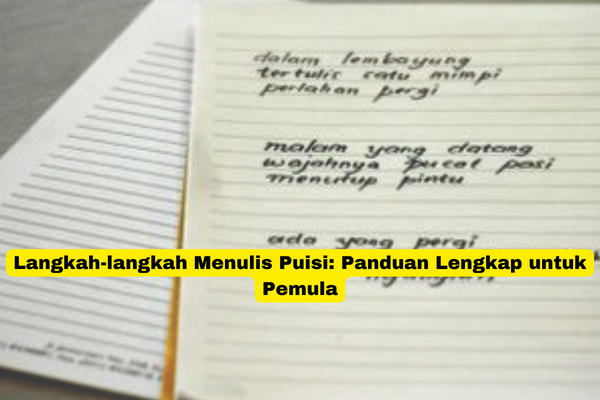 dalam lembayung
tertulis satu mimpi
perlahan pergi
malam yang datang
wajahnya pucat pasi
menutup pintu
ada yang pergi
Langkah-langkah Menulis Puisi: Panduan Lengkap untuk
Pemula